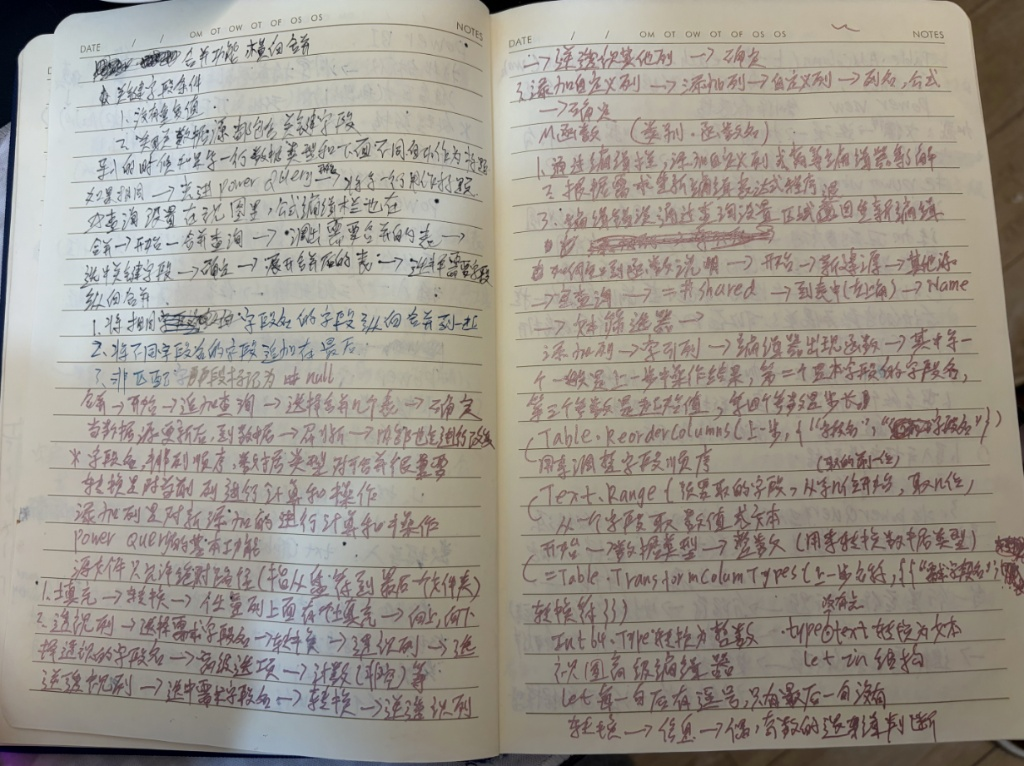 OM OT OW OT OF OS OS
DATE / / NOTES
合并功能 横向合并
关键字段条件
1. 没有重复值
2. 数据源都包含关键字段
导入的时候如果第一行数据类型和下面不同自动作为标题
如果相同 → 先进 Power Query → 将第一行用作标题
在查询设置在视图里，公式编辑栏也在
合并 → 开始 → 合并查询 → 调出需要合并的表 →
选中关键字段 → 确定 → 展开合并后的表 → 选择需要字段
纵向合并
1. 将相同字段名的字段纵向合并到一起
2. 将不同字段名的字段追加在最后
3. 非匹配字段标记为 null,
合并 → 开始 → 追加查询 → 选择合并几个表 → 确定
当数据源更新后，到数据 → 刷新 → 内部也会进行改变
* 字段名，排列顺序，数据类型，对于合并很重要
转换是对当前列进行计算和操作
添加列是对新添加的进行计算和操作
Power Query的基本功能
源文件只允许绝对路径(指从盘符到最后一个文件夹)
1. 填充 → 转换 → 任意列上面有个填充 → 向上，向下
2. 透视列 → 选择要求字段名 → 转换 → 透视列 → 选
择透视的字段名 → 高级选项 → 计数(非空)等
逆透视列 → 选中需求字段名 → 转换 → 逆透视列
OM OT OW OT OF OS OS
DATE / / NOTES
→ 逆透视其他列 → 确定
3. 添加自定义列 → 添加列 → 自定义列 → 列名，公式
→ 确定
M函数 (类别.函数名)
1. 通过编辑栏，添加自定义列式高级编辑器了解
2. 根据需求重新编辑表达式程序
3. 编辑错误通过查询设置区域返回重新编辑
如何包到函数说明 → 开始 → 新建源 → 其他源
→ 空查询 → =#shared → 到表中(左上角) → Name
→ 文本筛选器 →
添加列 → 索引列 → 编辑器出现函数 → 其中第
一个一般是上一步中操作结果，第二个是本字段的字段名，
第三个参数是起始值，第四个参数是步长
(Table.ReorderColumns(上一步, {"字段名", "字段名"})
用来调整字段顺序 (取的前一位)
(Text.Range(设置取的字段，从第n位开始，取n位，
从一个字段取数值或文本
开始 → 数据类型 → 整数 (用来转换数据类型)
(=Table.TransformColumTypes(上一步名称, {{"字段名",
转换符}})
没有点
Int64.Type 转换为整数 .type text 转换为文本
视图高级编辑器 let in 结构
let每一句后有逗号，只有最后一句没有
转换 → 信息 → 偶，奇数的选项判断